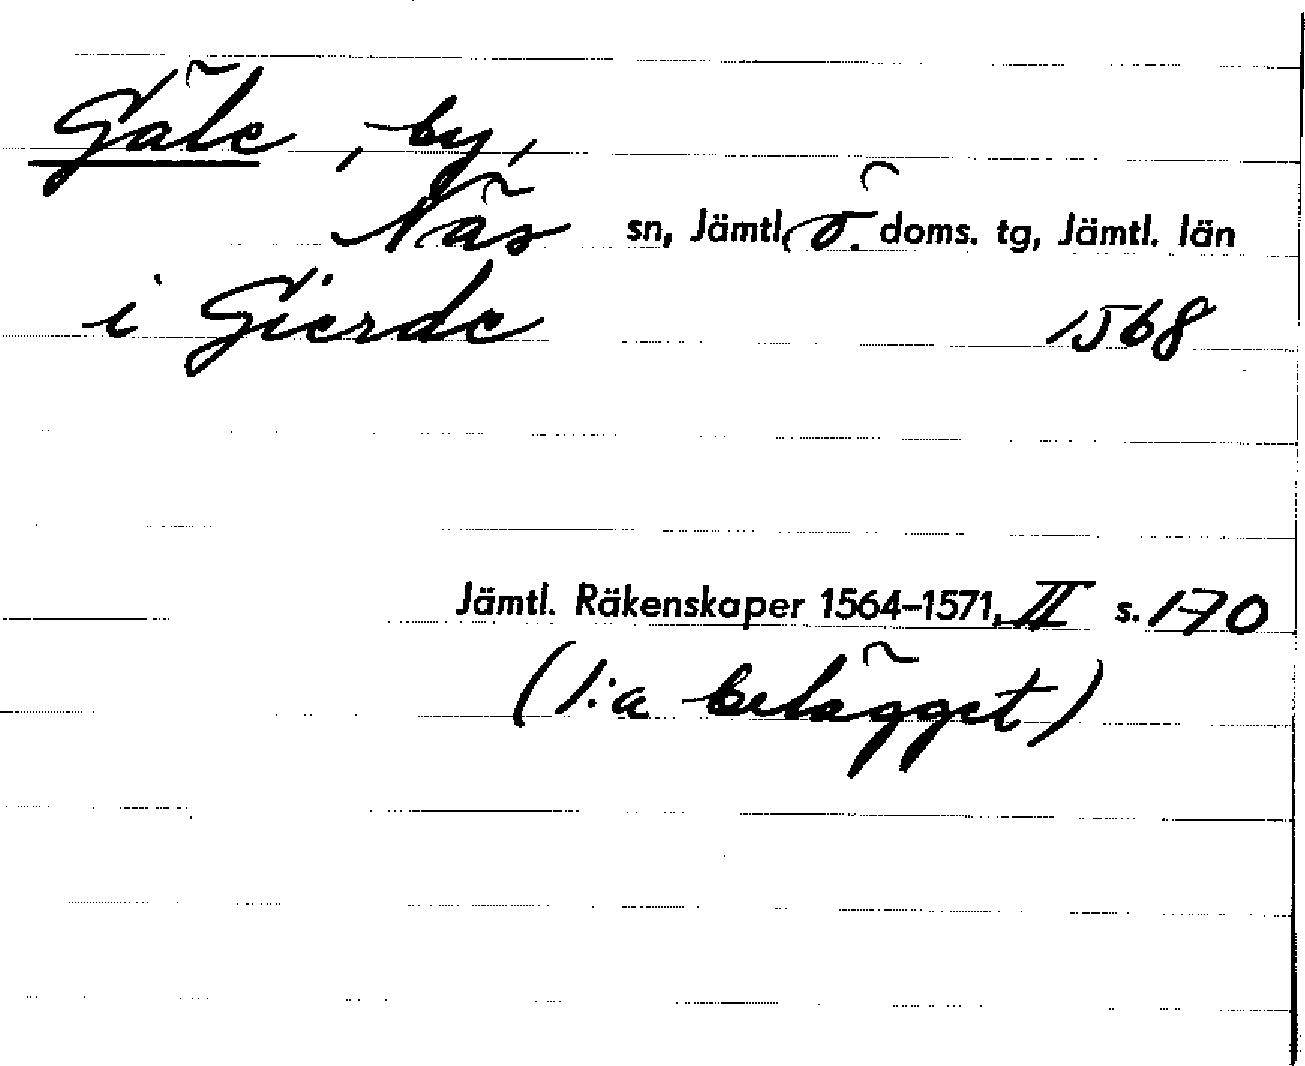 Gäle, by,
Näs sn, Jämtl. ö. doms. tg, Jämtl. län
i Gierde 1568
Jämtl. Räkenskaper 1564–1571, II s. 170
(1:a belägget)